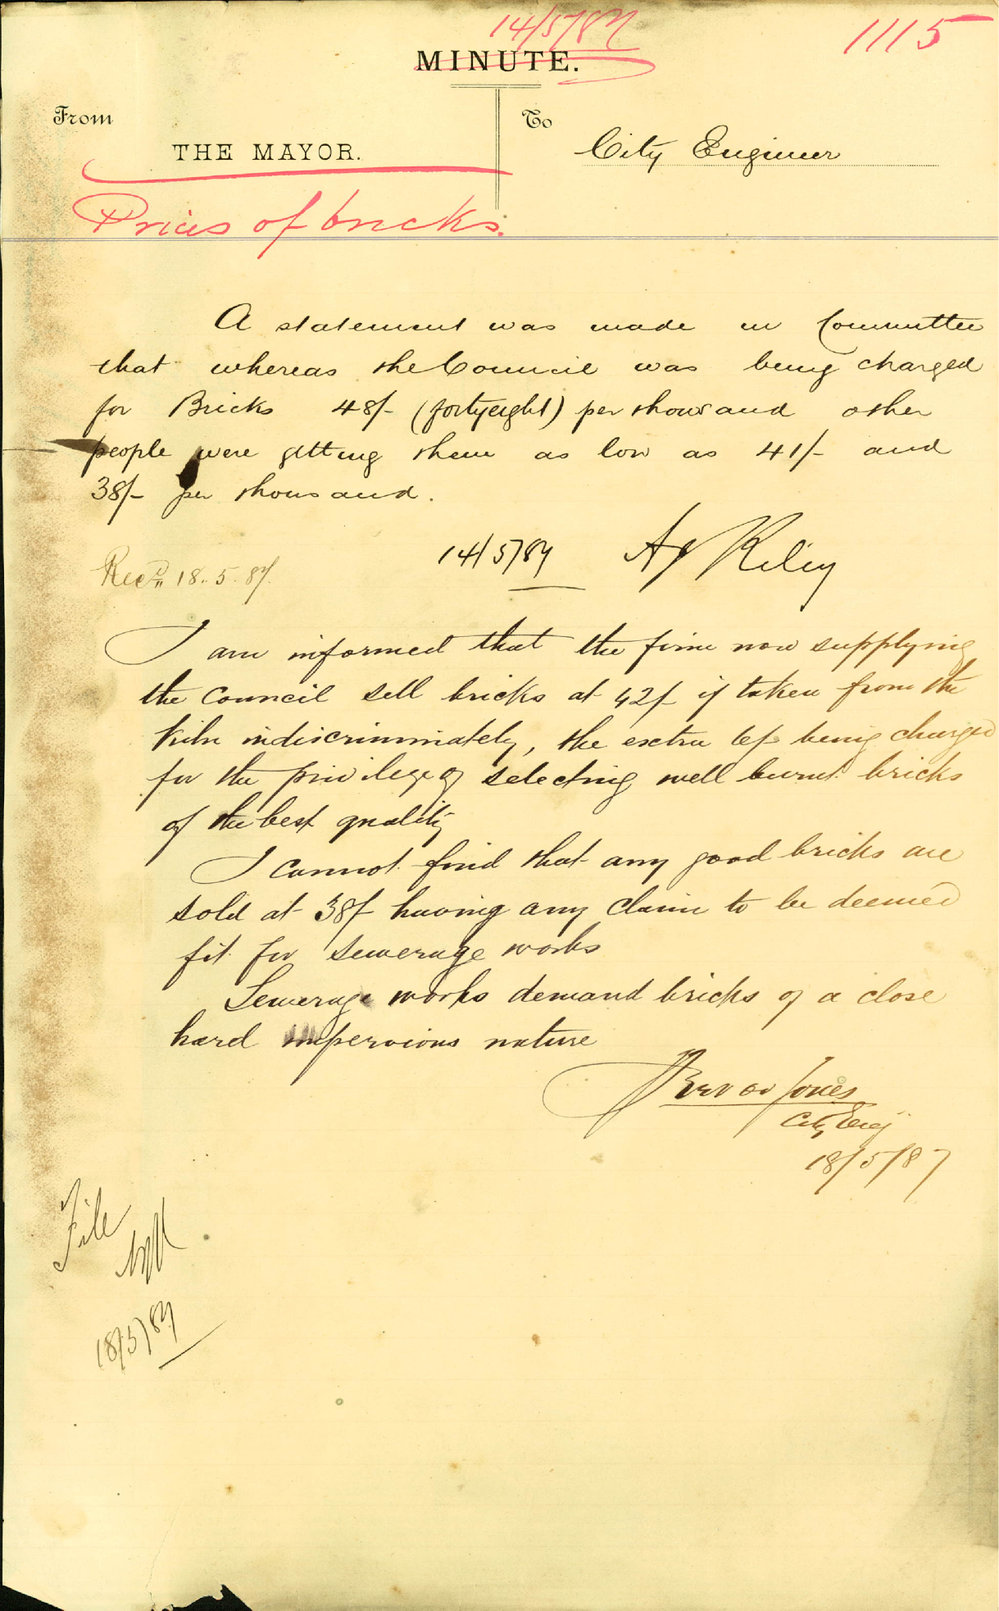 14/5/87
1115
MINUTE.
From
To
THE MAYOR.
City Engineer
Prices of bricks.
A statement was made in Committee
that whereas the Council was being charged
for Bricks 48/- (fortyeight) per thousand other
people were getting them as low as 41/- and
38/- per thousand.
14/5/87 A J Riley
Recd 18.5.87.
I am informed that the firm now supplying
the Council sell bricks at 42/ if taken from the
kiln indiscriminately, the extra 6/ being charged
for the privilege of selecting well burnt bricks
of the best quality
I cannot find that any good bricks are
sold at 38/ having any claim to be deemed
fit for sewerage works
Sewerage works demand bricks of a close
hard impervious nature
Trevor Jones
City Eng
18/5/87
File
18/5/87